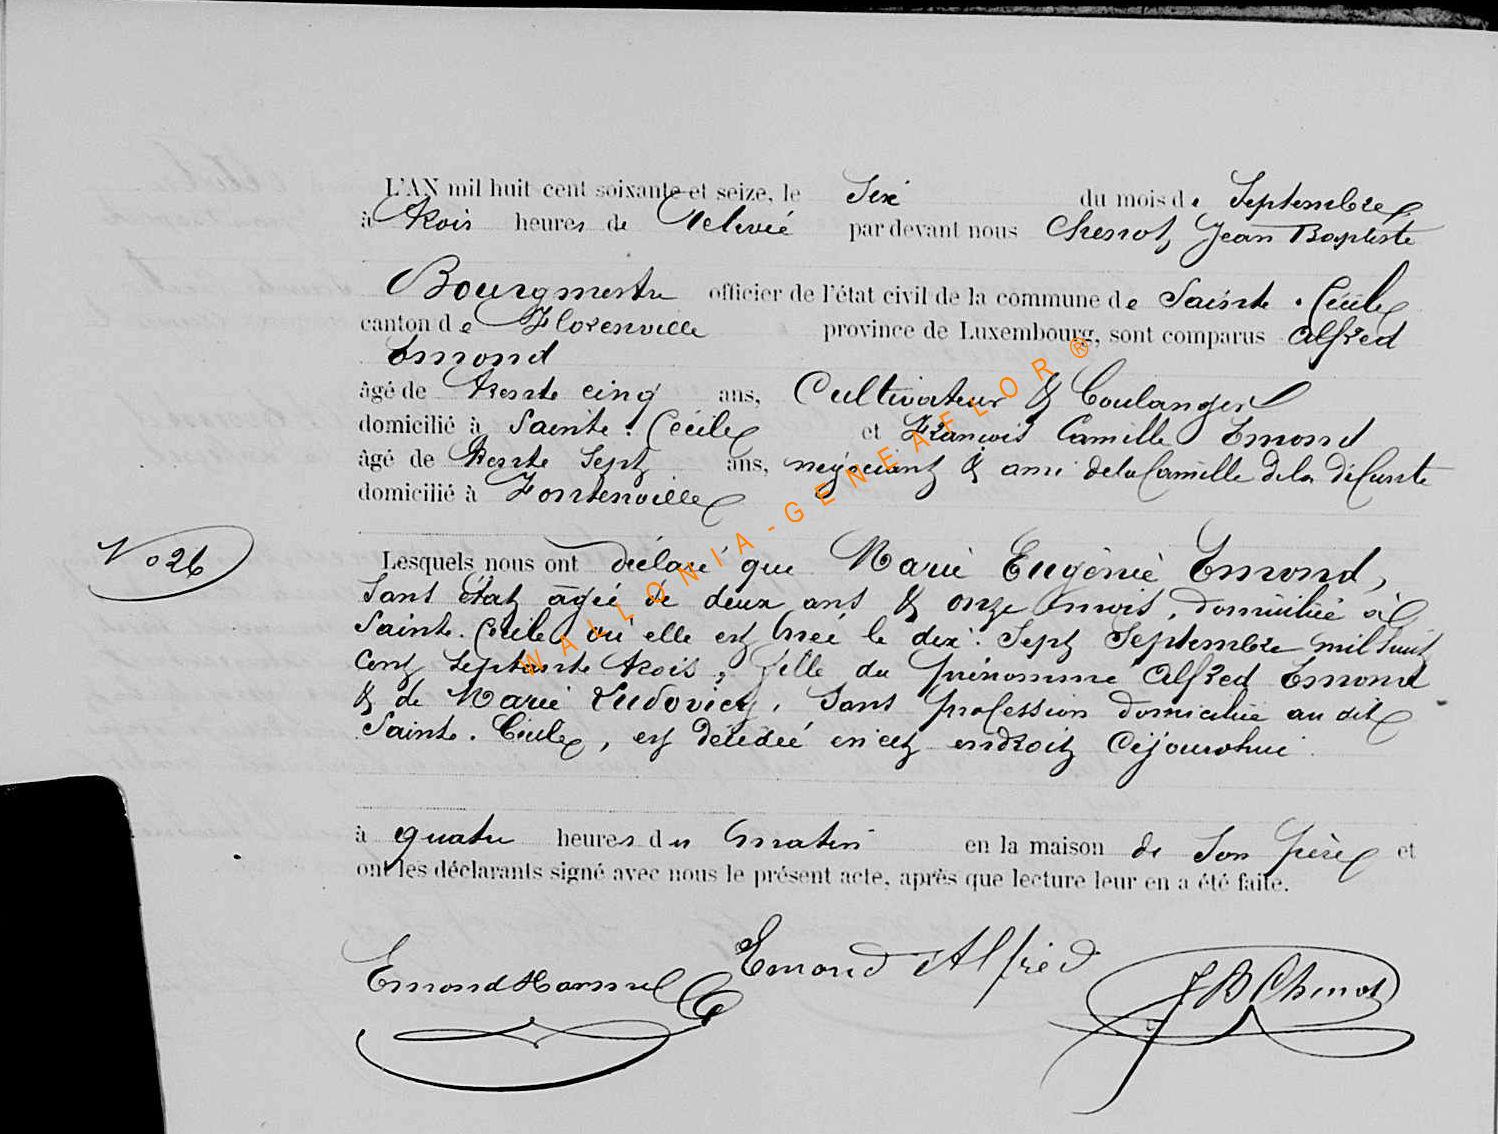 L'AN mil huit cent soixante et seize, le Six du mois de Septembre
à trois heures de relevée pardevant nous Chenot, Jean Baptiste
Bourgmestre officier de l'état civil de la commune de Sainte-Cécile
canton de Florenville province de Luxembourg, sont comparus Alfred
Emond
âgé de trente cinq ans, Cultivateur & boulanger
domicilié à Sainte-Cécile et François Camille Emond
âgé de trente sept ans, négociant & ami de la famille de la défunte
domicilié à Fontenoille
No 26
Lesquels nous ont déclaré que Marie Eugénie Emond,
sans état âgée de deux ans & onze mois, domiciliée à
Sainte-Cécile où elle est née le dix-sept Septembre mil huit
cent septante trois, fille du prénommé Alfred Emond
& de Marie Ludovicy, sans profession domiciliée au dit
Sainte-Cécile, est décédée en cet endroit cejourdhui
à quatre heures du matin en la maison de son père et
ont les déclarants signé avec nous le présent acte, après que lecture leur en a été faite.
Emond Alfred
J B Chenot
WALLONIA-GENEAFLOR ®